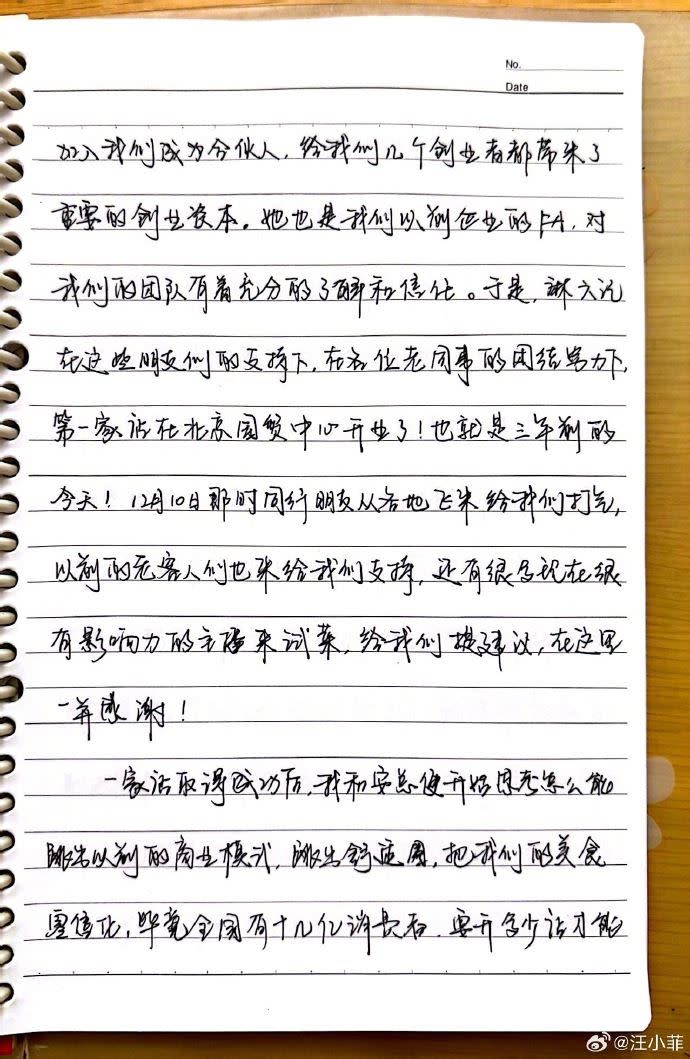 No.
Date
加入我们成为合伙人,给我们几个创业者都带来了
重要的创业资本。她也是我们以前企业的FA,对
我们的团队有着充分的了解和信任。于是,麻六记
在这些朋友们的支持下,在各位老同事的团结努力下,
第一家店在北京国贸中心开业了!也就是三年前的
今天!12月10日那时同行朋友从各地飞来给我们打气,
以前的老客人们也来给我们支持,还有很多现在很
有影响力的主播来试菜,给我们提建议,在这里
一并感谢!
一家店取得成功后,我和安总便开始思考怎么能
跳出以前的商业模式,跳出舒适圈,把我们的美食
零售化,毕竟全国有十几亿消费者,要开多少店才能
@汪小菲